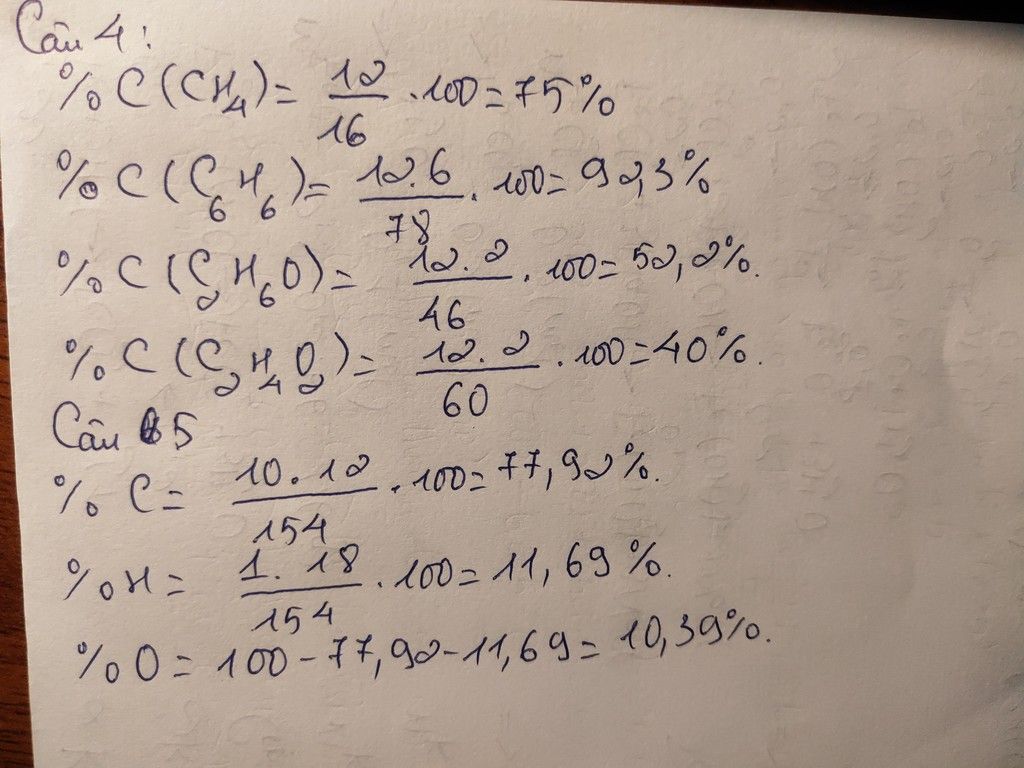 Câu 4:
%C(CH₄) = 12/16 . 100 = 75%
%C(C₆H₆) = 12.6/78 . 100 = 92,3%
%C(C₂H₆O) = 12.2/46 . 100 = 52,2%.
%C(C₂H₄O₂) = 12.2/60 . 100 = 40%.
Câu 5
%C = 10.12/154 . 100 = 77,92%.
%H = 1.18/154 . 100 = 11,69%.
%O = 100 - 77,92 - 11,69 = 10,39%.